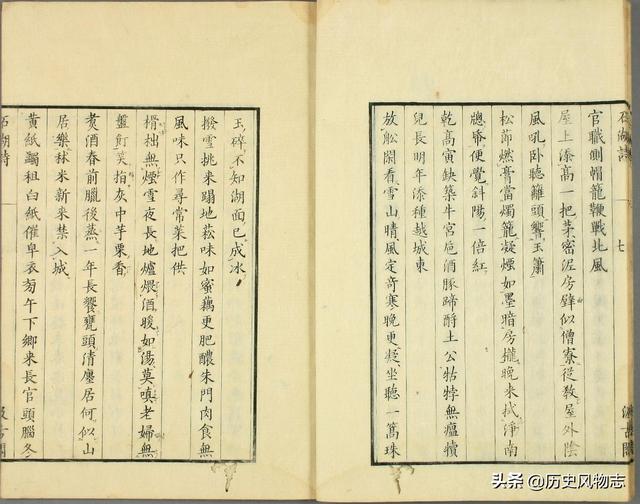 石湖詩 七
官職側帽籠鞭戰北風
屋上添高一把茅密泥房壁似僧寮從教屋外陰
風吼卧聽籬頭響玉簫
松節燃膏當燭籠凝煙如墨暗房櫳晚来拭淨南
牕帋便覺斜陽一倍紅
乾高寅缺築牛宮巵酒豚蹄酹土公牯牸無瘟犢
兒長明年添種越城東
放船閑看雪山晴風定奇寒晚更凝坐聽一篙珠
玉碎不知湖面已成冰
撥雪挑来蹋地菘味如蜜藕更肥醲朱門肉食無
風味只作尋常菜把供
榾柮無煙雪夜長地爐煨酒暖如湯莫嗔老婦無
盤飣笑指灰中芋栗香
煑酒春前臘後蒸一年長饗甕頭清廛居何似山
居樂秫米新来禁入城
黃紙蠲租白紙催皁衣旁午下鄉来長官頭腦冬
石湖詩
头条 @历史风物志